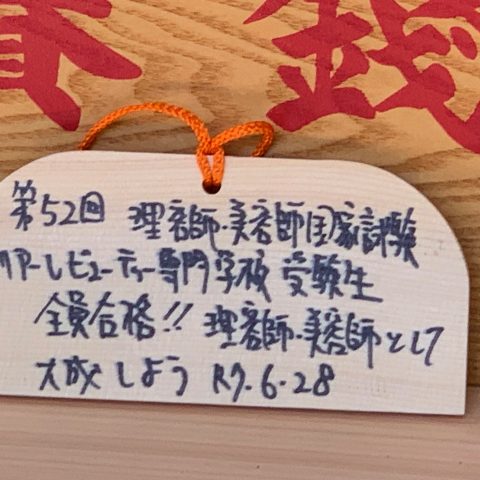 第52回 理容師・美容師国家試験
ビューティー専門学校 受験生
全員合格!! 理容師・美容師として
大成しよう R7.6.28